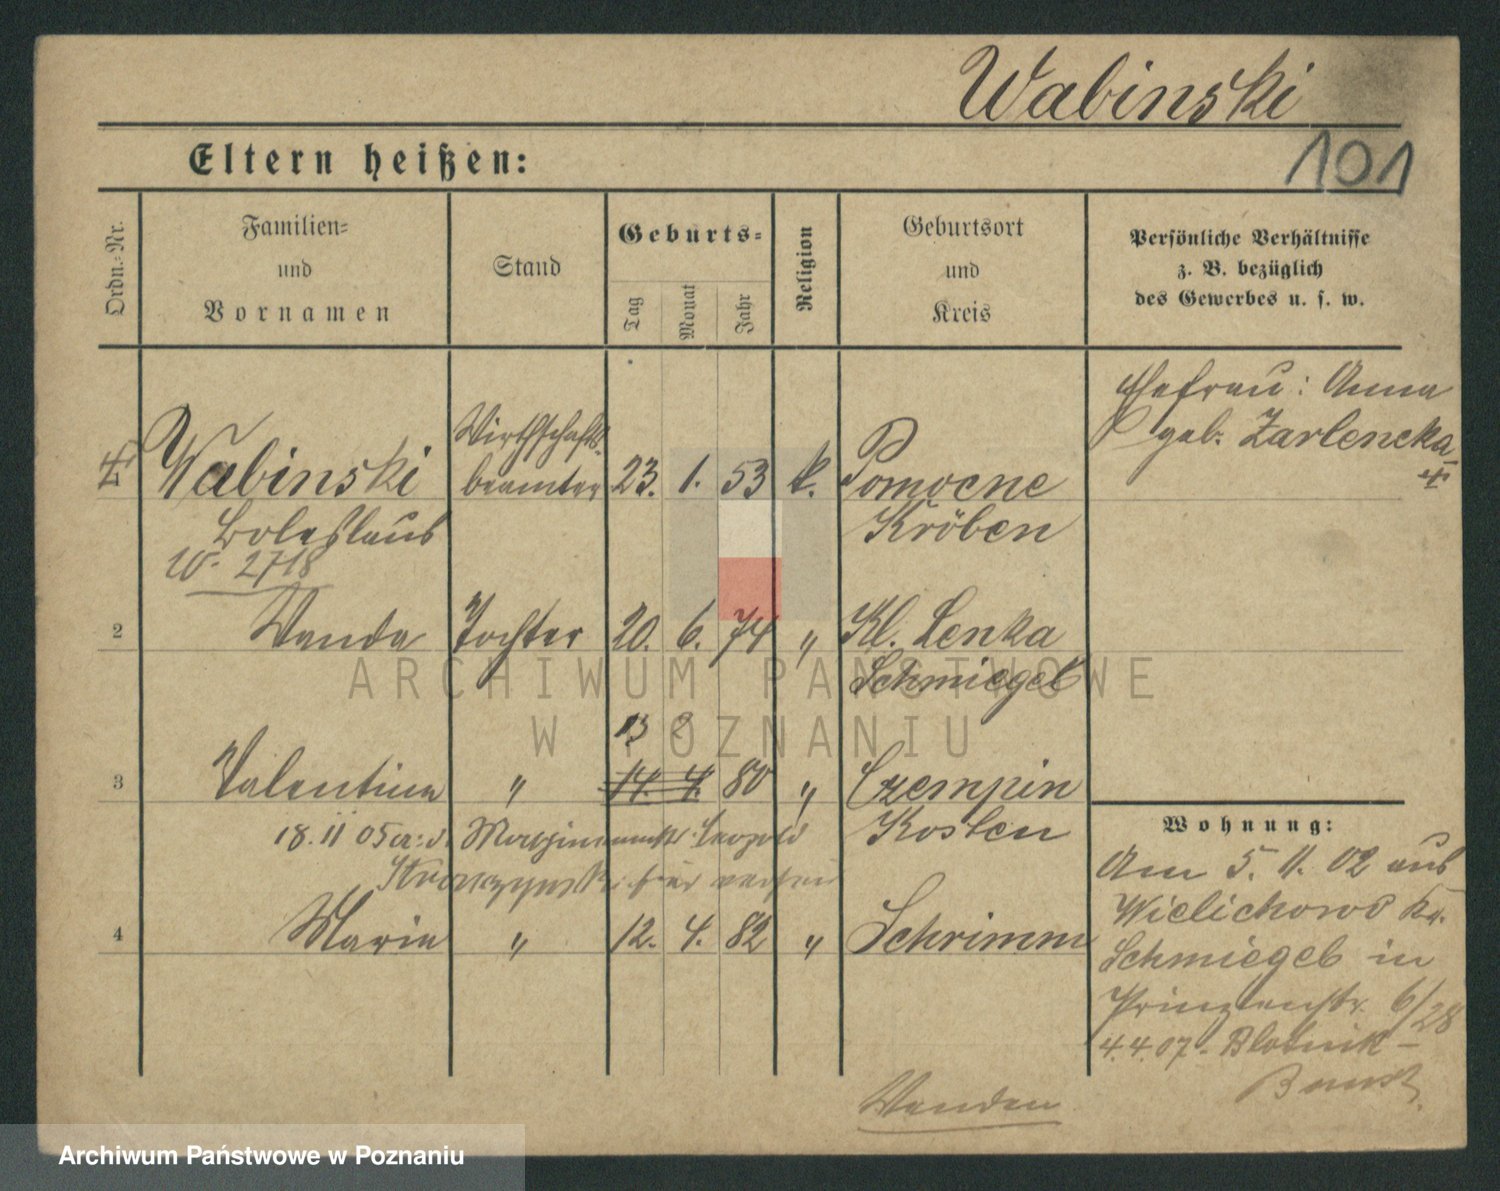 Wabinski
101
Eltern heißen:
Ordn.-Nr.
Familien-
und
Vornamen
Stand
Geburts-
Tag
Monat
Jahr
Religion
Geburtsort
und
Kreis
Persönliche Verhältnisse
z. B. bezüglich
des Gewerbes u. s. w.
Ehefrau: Anna
geb. Zarlencka
Wabinski
Wirthschafts-
beamter
23. 1. 53
k.
Pomocne
Boleslaus
Kröben
W. 2718
2
Wanda
Tochter
20. 6. 74
"
Kl. Lenka
Schmiegel
13 2
3
Valentina
"
14. 4. 80
"
Czempin
Kosten
18.11 05
Leopold
4
Maria
"
12. 4. 82
"
Schrimm
Wohnung:
Am 5. 11. 02 aus
Wielichowo Kr.
Schmiegel in
Prinzenstr. 6/28
4.4.07.
Wenden
ARCHIWUM PAŃSTWOWE
W POZNANIU
Archiwum Państwowe w Poznaniu